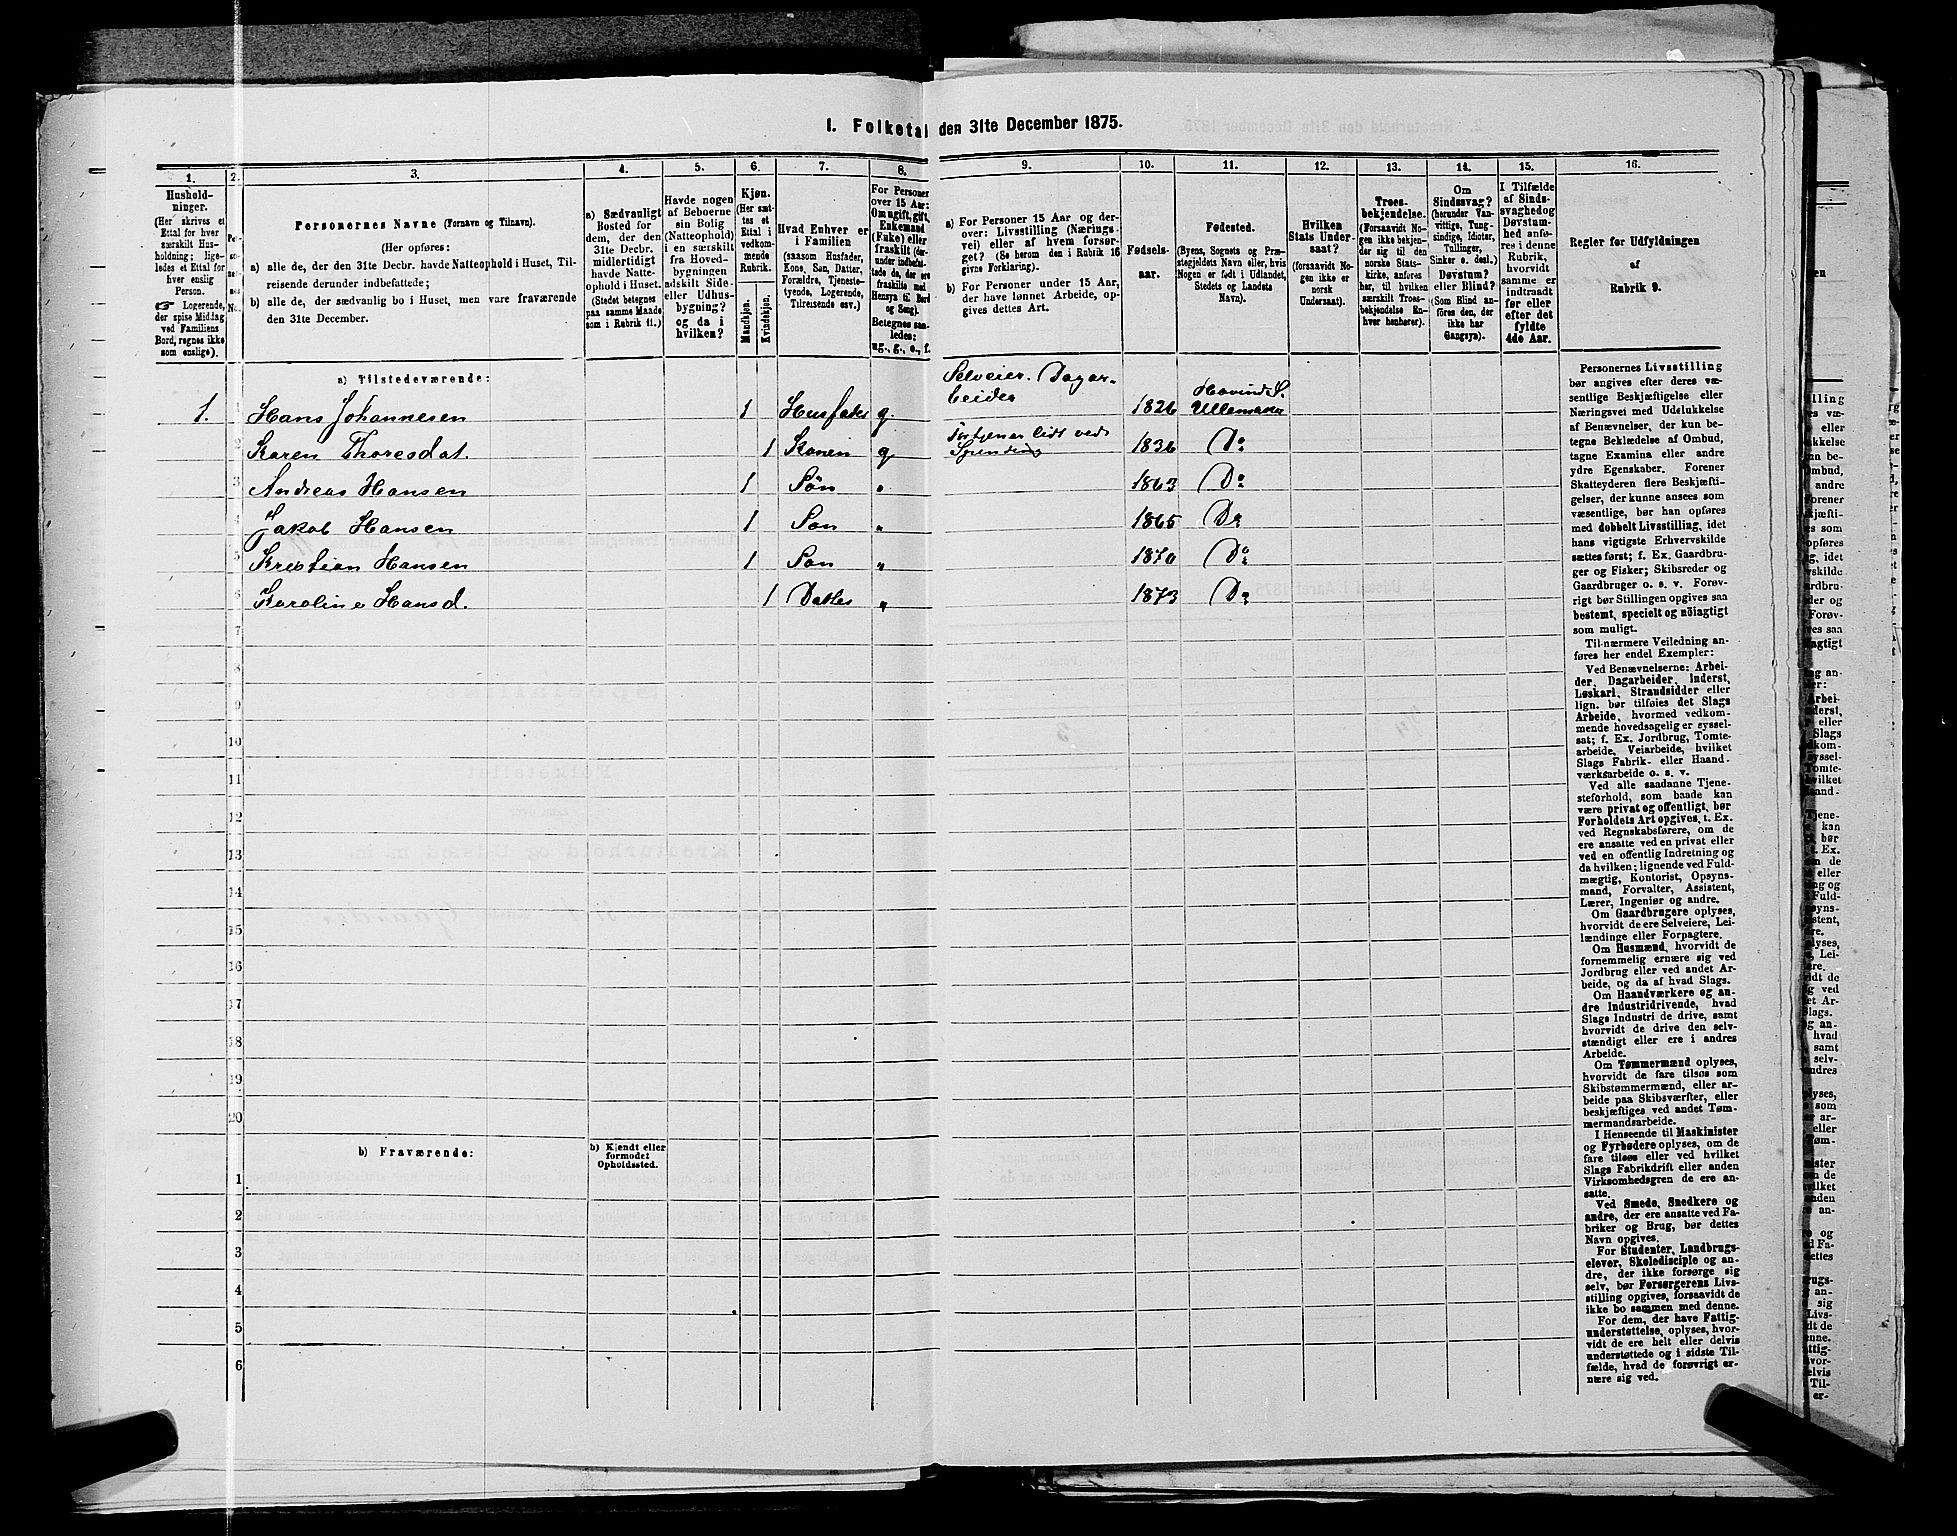 1. Folketal den 31te December 1875.
1.
2.
3.
4.
5.
6.
7.
8.
9.
10.
11.
12.
13.
14.
15.
16.
Hushold-
ninger.
(Her skrives et
Ettal for hver
særskilt Hus-
holdning; lige-
ledes et Ettal for
hver enslig
Person.
☞ Logerende,
der spise Middag
ved Familiens
Bord, regnes ikke
som enslige).
Per-
so-
ner-
nes
No.
Personernes Navne (Fornavn og Tilnavn).
(Her opføres:
a) alle de, der den 31te Decbr. havde Natteophold i Huset, Til-
reisende derunder indbefattede;
b) alle de, der sædvanlig bo i Huset, men vare fraværende
den 31te December.
a) Sædvanligt
Bosted for
dem, der den
31te Decbr.
midlertidigt
havde Natte-
ophold i Huset.
(Stedet betegnes
paa samme Maade
som i Rubrik 11.)
Havde nogen
af Beboerne
sin Bolig
(Natteophold)
i en særskilt
fra Hoved-
bygningen
adskilt Side-
eller Udhus-
bygning?
og da i
hvilken?
Kjøn.
(Her sæt-
tes et
Ettal i
vedkom-
mende
Rubrik.
Mandkjøn.
Kvindekjøn.
Hvad Enhver er
i Familien
(saasom Husfader,
Kone, Søn, Datter,
Forældre, Tjeneste-
tyende, Logerende,
Tilreisende osv.)
For Personer
over 15 Aar:
Om ugift, gift,
Enkemand
(Enke) eller
fraskilt (der-
under indbefat-
tede de, der ere
fraskilte med
Hensyn til Bord
og Seng).
Betegnes saa-
ledes:
ug., g., e., f.
a) For Personer 15 Aar og der-
over: Livsstilling (Nærings-
vei) eller af hvem forsør-
get? (Se herom den i Rubrik 16
givne Forklaring).
b) For Personer under 15 Aar,
der have lønnet Arbeide, op-
gives dettes Art.
Fødsels-
aar.
Fødested.
(Byens, Sognets og Præ-
stegjeldets Navn eller, hvis
Nogen er født i Udlandet,
Stedets og Landets
Navn).
Hvilken
Stats Under-
saat?
(forsaavidt No-
gen ikke er
norsk
Undersaat).
Troes-
bekjendelse.
(Forsaavidt No-
gen ikke bekjen-
der sig til den
norske Stats-
kirke, anføres
her, til hvilken
særskilt Troes-
bekjendelse En-
hver henhører).
Om
Sindssvag?
(herunder Van-
vittige, Tung-
sindige, Idioter,
Tullinger,
Sinker o. desl.)
Døvstum?
eller Blind?
(Som Blind an-
føres den, der
ikke har
Gangsyn).
I Tilfælde
af Sinds-
svaghed og
Døvstum-
hed anfø-
res i denne
Rubrik,
hvorvidt
samme er
indtraadt
før eller
efter det
fyldte
4de Aar.
Regler for Udfyldningen
af
Rubrik 9.
a) Tilstedeværende:
1. 1 Hans Johannesen 1 Husfader g. Selveier. Dagar-
beider 1826 Hovind S.
Ullensaker
2 Karen Thoresdat. 1 Konen g. Fortjener lidt ved
Spinding 1836 Do
3 Andreas Hansen 1 Søn " 1863 Do
4 Jakob Hansen 1 Søn " 1865 Do
5 Kristian Hansen 1 Søn " 1870 Do
6 Karoline Hansd. 1 Datter " 1873 Do
7
8
9
10
11
12
13
14
15
16
17
18
19
20
b) Fraværende:
b) Kjendt eller
formodet
Opholdssted.
1
2
3
4
5
6
Personernes Livsstilling
bør angives efter deres væ-
sentlige Beskjæftigelse eller
Næringsvei med Udelukkelse
af Benævnelser, der kun be-
tegne Beklædelse af Ombud,
tagne Examina eller andre
ydre Egenskaber. Forener
Skatteyderen flere Beskjæfti-
gelser, der kunne ansees som
væsentlige, bør han opføres
med dobbelt Livsstilling, idet
hans vigtigste Erhvervskilde
sættes først; f. Ex. Gaardbru-
ger og Fisker; Skibsreder og
Gaardbruger o. s. v. Forøv-
rigt bør Stillingen opgives saa
bestemt, specielt og nöiagtigt
som muligt.
Til nærmere Veiledning an-
føres her endel Exempler:
Ved Benævnelserne: Arbei-
der, Dagarbeider, Inderst,
Løskarl, Strandsidder eller
lign. bør tilføies det Slags
Arbeide, hvormed vedkom-
mende hovedsagelig er syssel-
sat; f. Ex. Jordbrug, Tomte-
arbeide, Veiarbeide, hvilket
Slags Fabrik- eller Haand-
værksarbeide o. s. v.
Ved alle saadanne Tjene-
steforhold, som baade kan
være privat og offentligt, bør
Forholdets Art opgives, t. Ex.
ved Regnskabsførere, om de
ere ansatte ved en privat eller
ved en offentlig Indretning og
da hvilken; lignende ved Fuld-
mægtig, Kontorist, Opsyns-
mand, Forvalter, Assistent,
Lærer, Ingeniør og andre.
Om Gaardbrugere oplyses,
hvorvidt de ere Selveiere, Lei-
lændinge eller Forpagtere.
Om Husmænd, hvorvidt de
fornemmelig ernære sig ved
Jordbrug eller ved andet Ar-
beide, og da af hvad Slags.
Om Haandværkere og an-
dre Industridrivende, hvad
Slags Industri de drive, samt
hvorvidt de drive den selv-
stændigt eller ere i andres
Arbeide.
Om Tømmermænd oplyses,
hvorvidt de fare tilsøs som
Skibstømmermænd, eller ar-
beide paa Skibsværfter, eller
beskjæftiges ved andet Tøm-
mermandsarbeide.
I Henseende til Maskinister
og Fyrbødere oplyses, om de
fare tilsøs eller ved hvilket
Slags Fabrikdrift eller anden
Virksomhedsgren de ere an-
satte.
Ved Smede, Snedkere og
andre, der ere ansatte ved Fa-
briker og Brug, bør dettes
Navn opgives.
For Studenter, Landbrugs-
elever, Skoledisciple og an-
dre, der ikke forsørge sig
selv, bør Forsørgerens Livs-
stilling opgives, forsaavidt de
ikke bo sammen med denne.
For dem, der have Fattig-
understøttelse, oplyses, hvor-
vidt de ere helt eller delvis
understøttede og i sidste Til-
fælde, hvad de forøvrigt er-
nære sig ved.